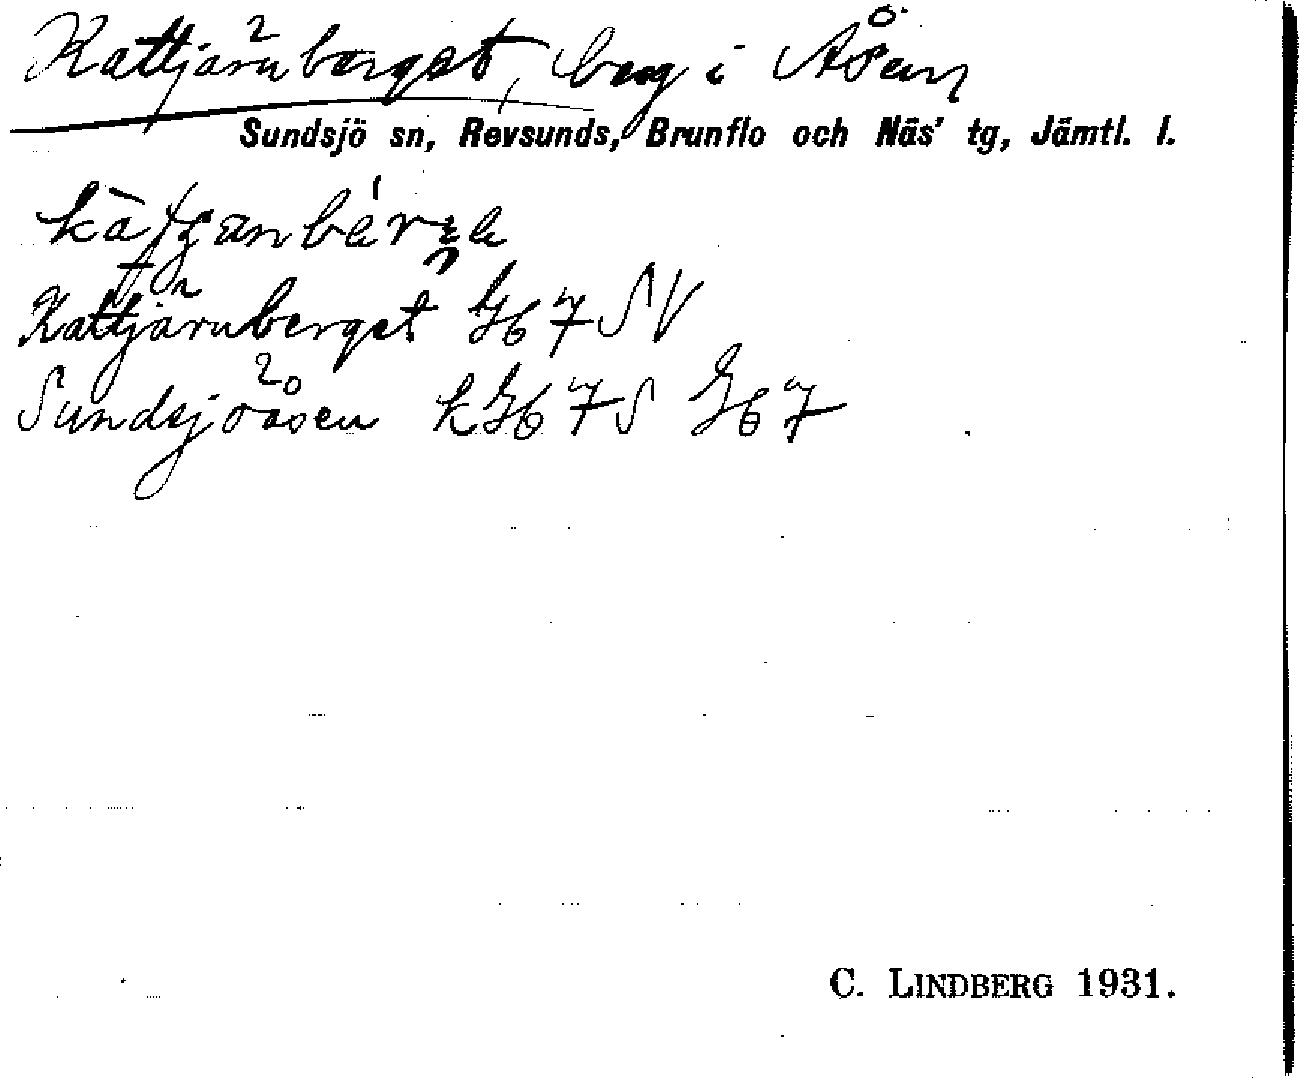 Kattjärnberget, berg i Åsen
Sundsjö sn, Revsunds, Brunflo och Näs' tg, Jämtl. l.
Kattjärnberget Gb 7 SV
Sundsjöåsen k Gb 7 S Gb 7
C. LINDBERG 1931.